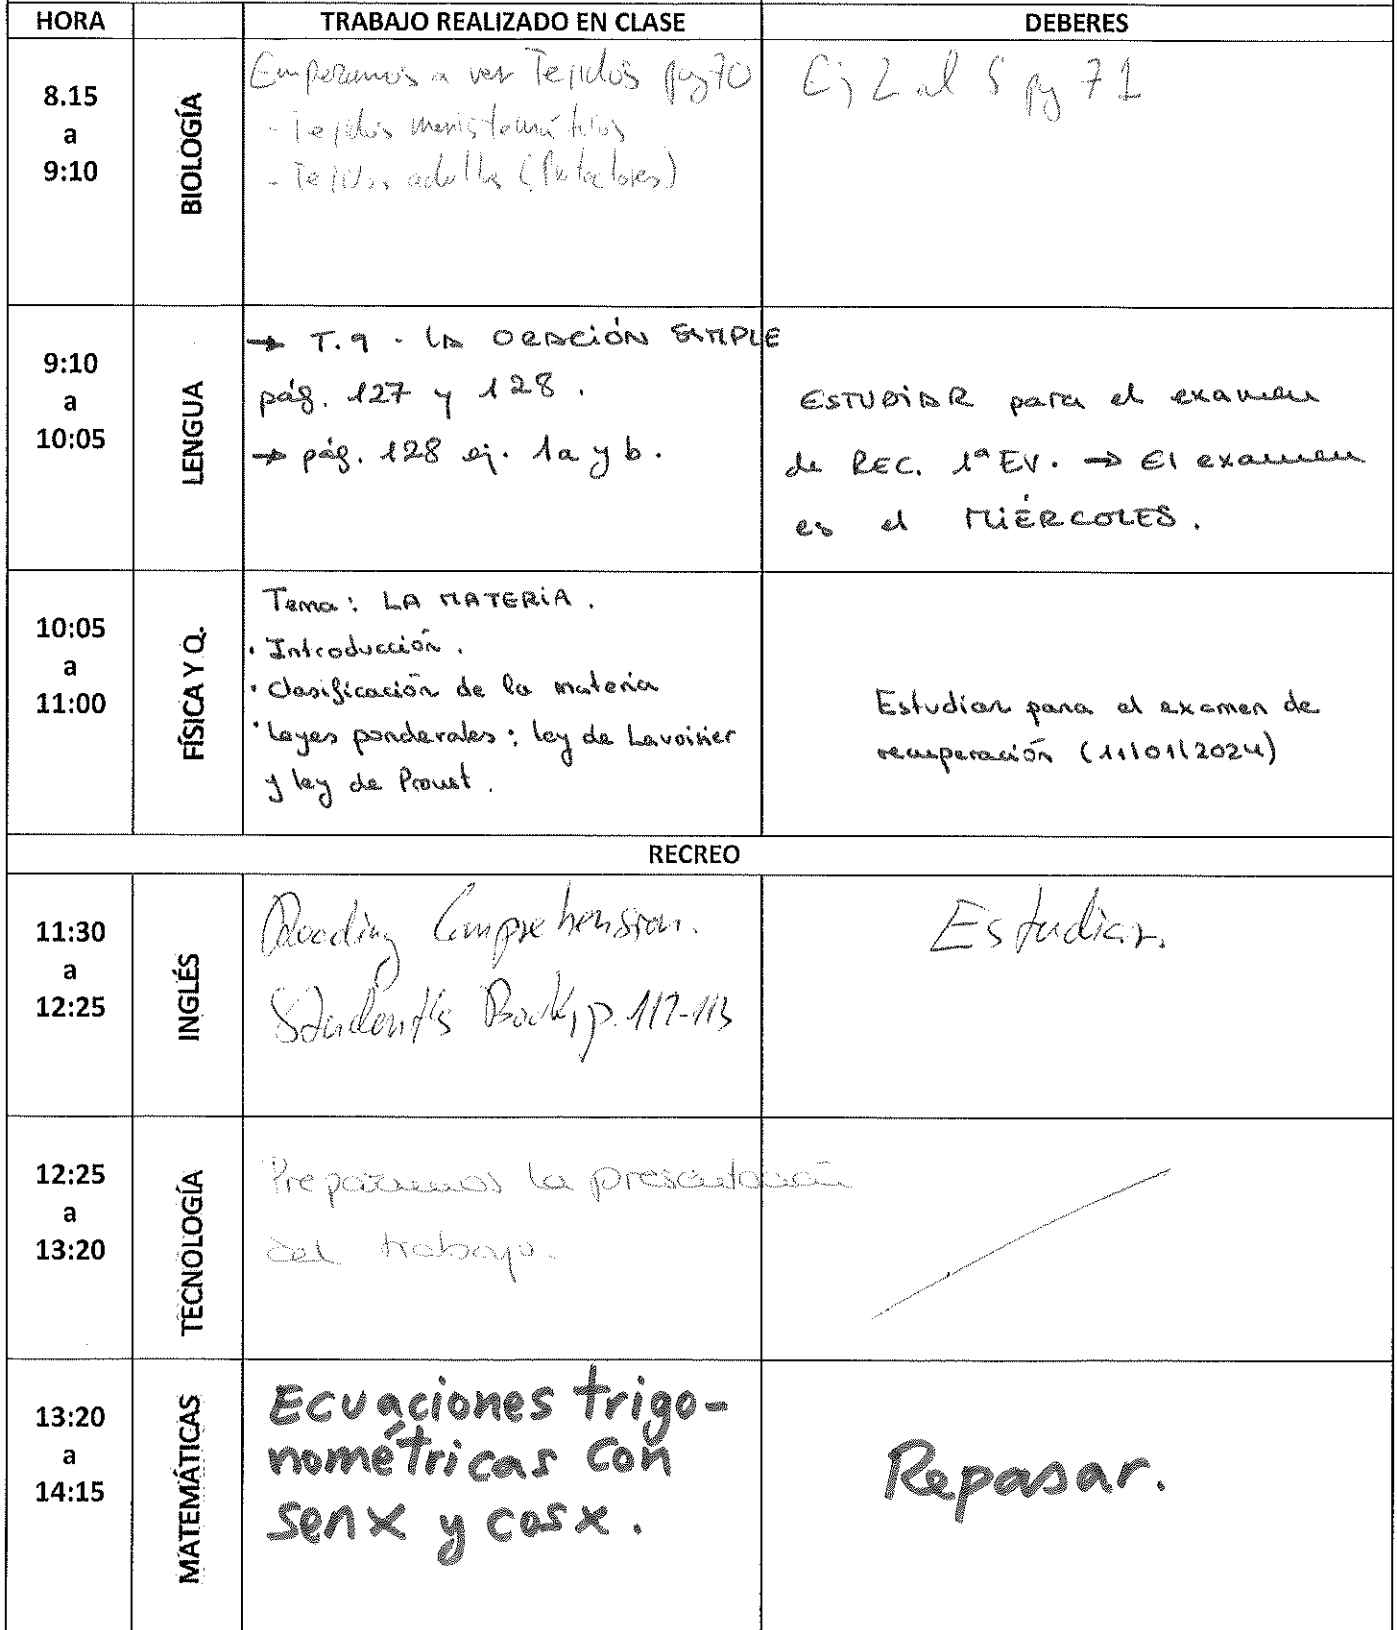 HORA TRABAJO REALIZADO EN CLASE DEBERES
8.15
a
9:10
BIOLOGÍA
Empezamos a ver Tejidos pag 70
- Tejidos meristemáticos
- Tejidos adultos (Protectores)
Ej 2 al 5 pg 71
9:10
a
10:05
LENGUA
→ T.9 - LA ORACIÓN SIMPLE
pág. 127 y 128.
→ pág. 128 ej. 1a y b.
ESTUDIAR para el examen
de REC. 1ª EV. → El examen
es el MIÉRCOLES.
10:05
a
11:00
FÍSICA Y Q.
Tema: LA MATERIA.
· Introducción.
· Clasificación de la materia
· Leyes ponderales: ley de Lavoisier
y ley de Proust.
Estudiar para el examen de
recuperación (11/01/2024)
RECREO
11:30
a
12:25
INGLÉS
Reading Comprehension.
Student's Book, p. 112-113
Estudiar.
12:25
a
13:20
TECNOLOGÍA
Preparamos la presentación
del trabajo.
13:20
a
14:15
MATEMÁTICAS
Ecuaciones trigo-
nométricas con
senx y cosx.
Repasar.